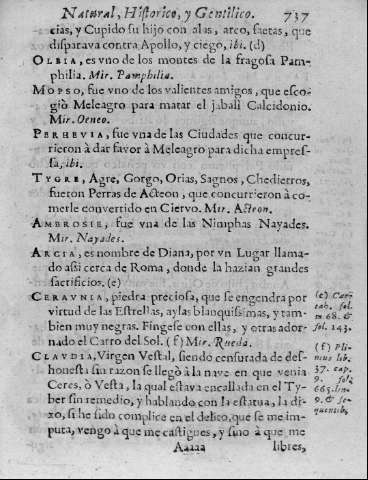 Natural, Historico, y Gentilico. 737
cias, y Cupido su hijo con alas, arco, saetas, que
disparava contra Apollo, y ciego, ibi. (d)
OLBIA, es vno de los montes de la fragosa Pam-
philia. Mir. Pamphilia.
MOPSO, fue vno de los valientes amigos, que esco-
giò Meleagro para matar el jabalì Calcidonio.
Mir. Oeneo.
PERHEVIA, fue vna de las Ciudades que concur-
rieron à dar favor à Meleagro para dicha empres-
sa, ibi.
TYGRE, Agre, Gorgo, Orias, Sagnos, Chedierros,
fueron Perras de Acteon, que concurrieron à co-
merle convertido en Ciervo. Mir. Acteon.
AMBROSIE, fue vna de las Nimphas Nayades.
Mir. Nayades.
ARCIA, es nombre de Diana, por vn Lugar llama-
do assi cerca de Roma, donde la hazian grandes
sacrificios. (e)
CERAVNIA, piedra preciosa, que se engendra por
virtud de las Estrellas, ay las blanquissimas, y tam-
bien muy negras. Fingese con ellas, y otras ador-
nado el Carro del Sol. (f) Mir. Rueda.
CLAVDIA, Virgen Vestal, siendo censurada de des-
honesta sin razon se llegò à la nave en que venia
Ceres, ò Vesta, la qual estava encallada en el Ty-
ber sin remedio, y hablando con la estatua, la di-
xo, si he sido complice en el delito, que se me im-
puta, vengo à que me castigues, y sino à que me
Aaaaa libres,
(e) Cart.
cab. fol.
m 68. &
fol. 143.
(f) Pli-
nius lib.
37. cap.
9. fol.
665. lin.
9. & se-
quentib.